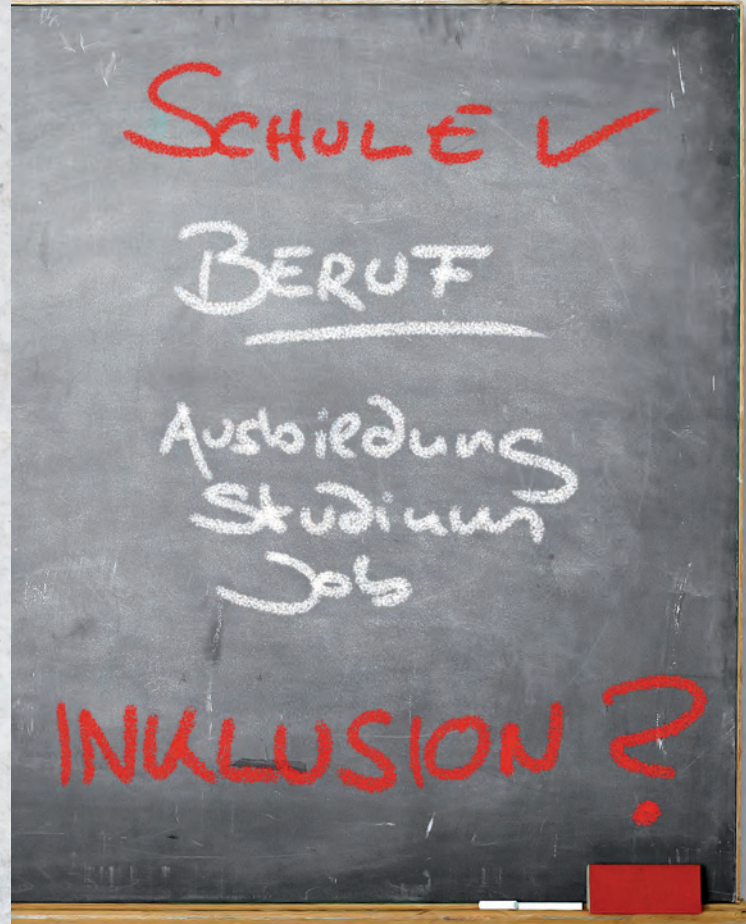 SCHULE ✓
BERUF
Ausbildung
Studium
Job
INKLUSION?